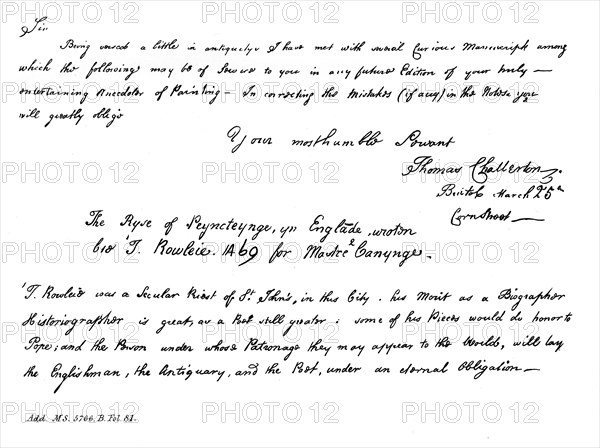 Sir
Being versed a little in antiquitys I have met with several Curious Manuscripts among
which the following may be of Service to you in any future Edition of your truly —
entertaining Anecdotes of Painting — In correcting the Mistakes (if any) in the Notes you
will greatly oblige
Your most humble Servant
Thomas Chatterton
Bristol March 25th
Corn Street —
The Ryse of Peyncteynge, yn Englāde, wroten
bie T. Rowleie. 1469 for Mastre Canynge.
T. Rowleie was a Secular Priest of St. John's, in this City. his Merit as a Biographer
Historiographer is great, as a Poet still greater: some of his Pieces would do honor to
Pope; and the Person under whose Patronage they may appear to the World, will lay
the Englishman, the Antiquary, and the Poet, under an eternal Obligation —
Add. M.S. 5766. B. Fol. 81.
PHOTO 12